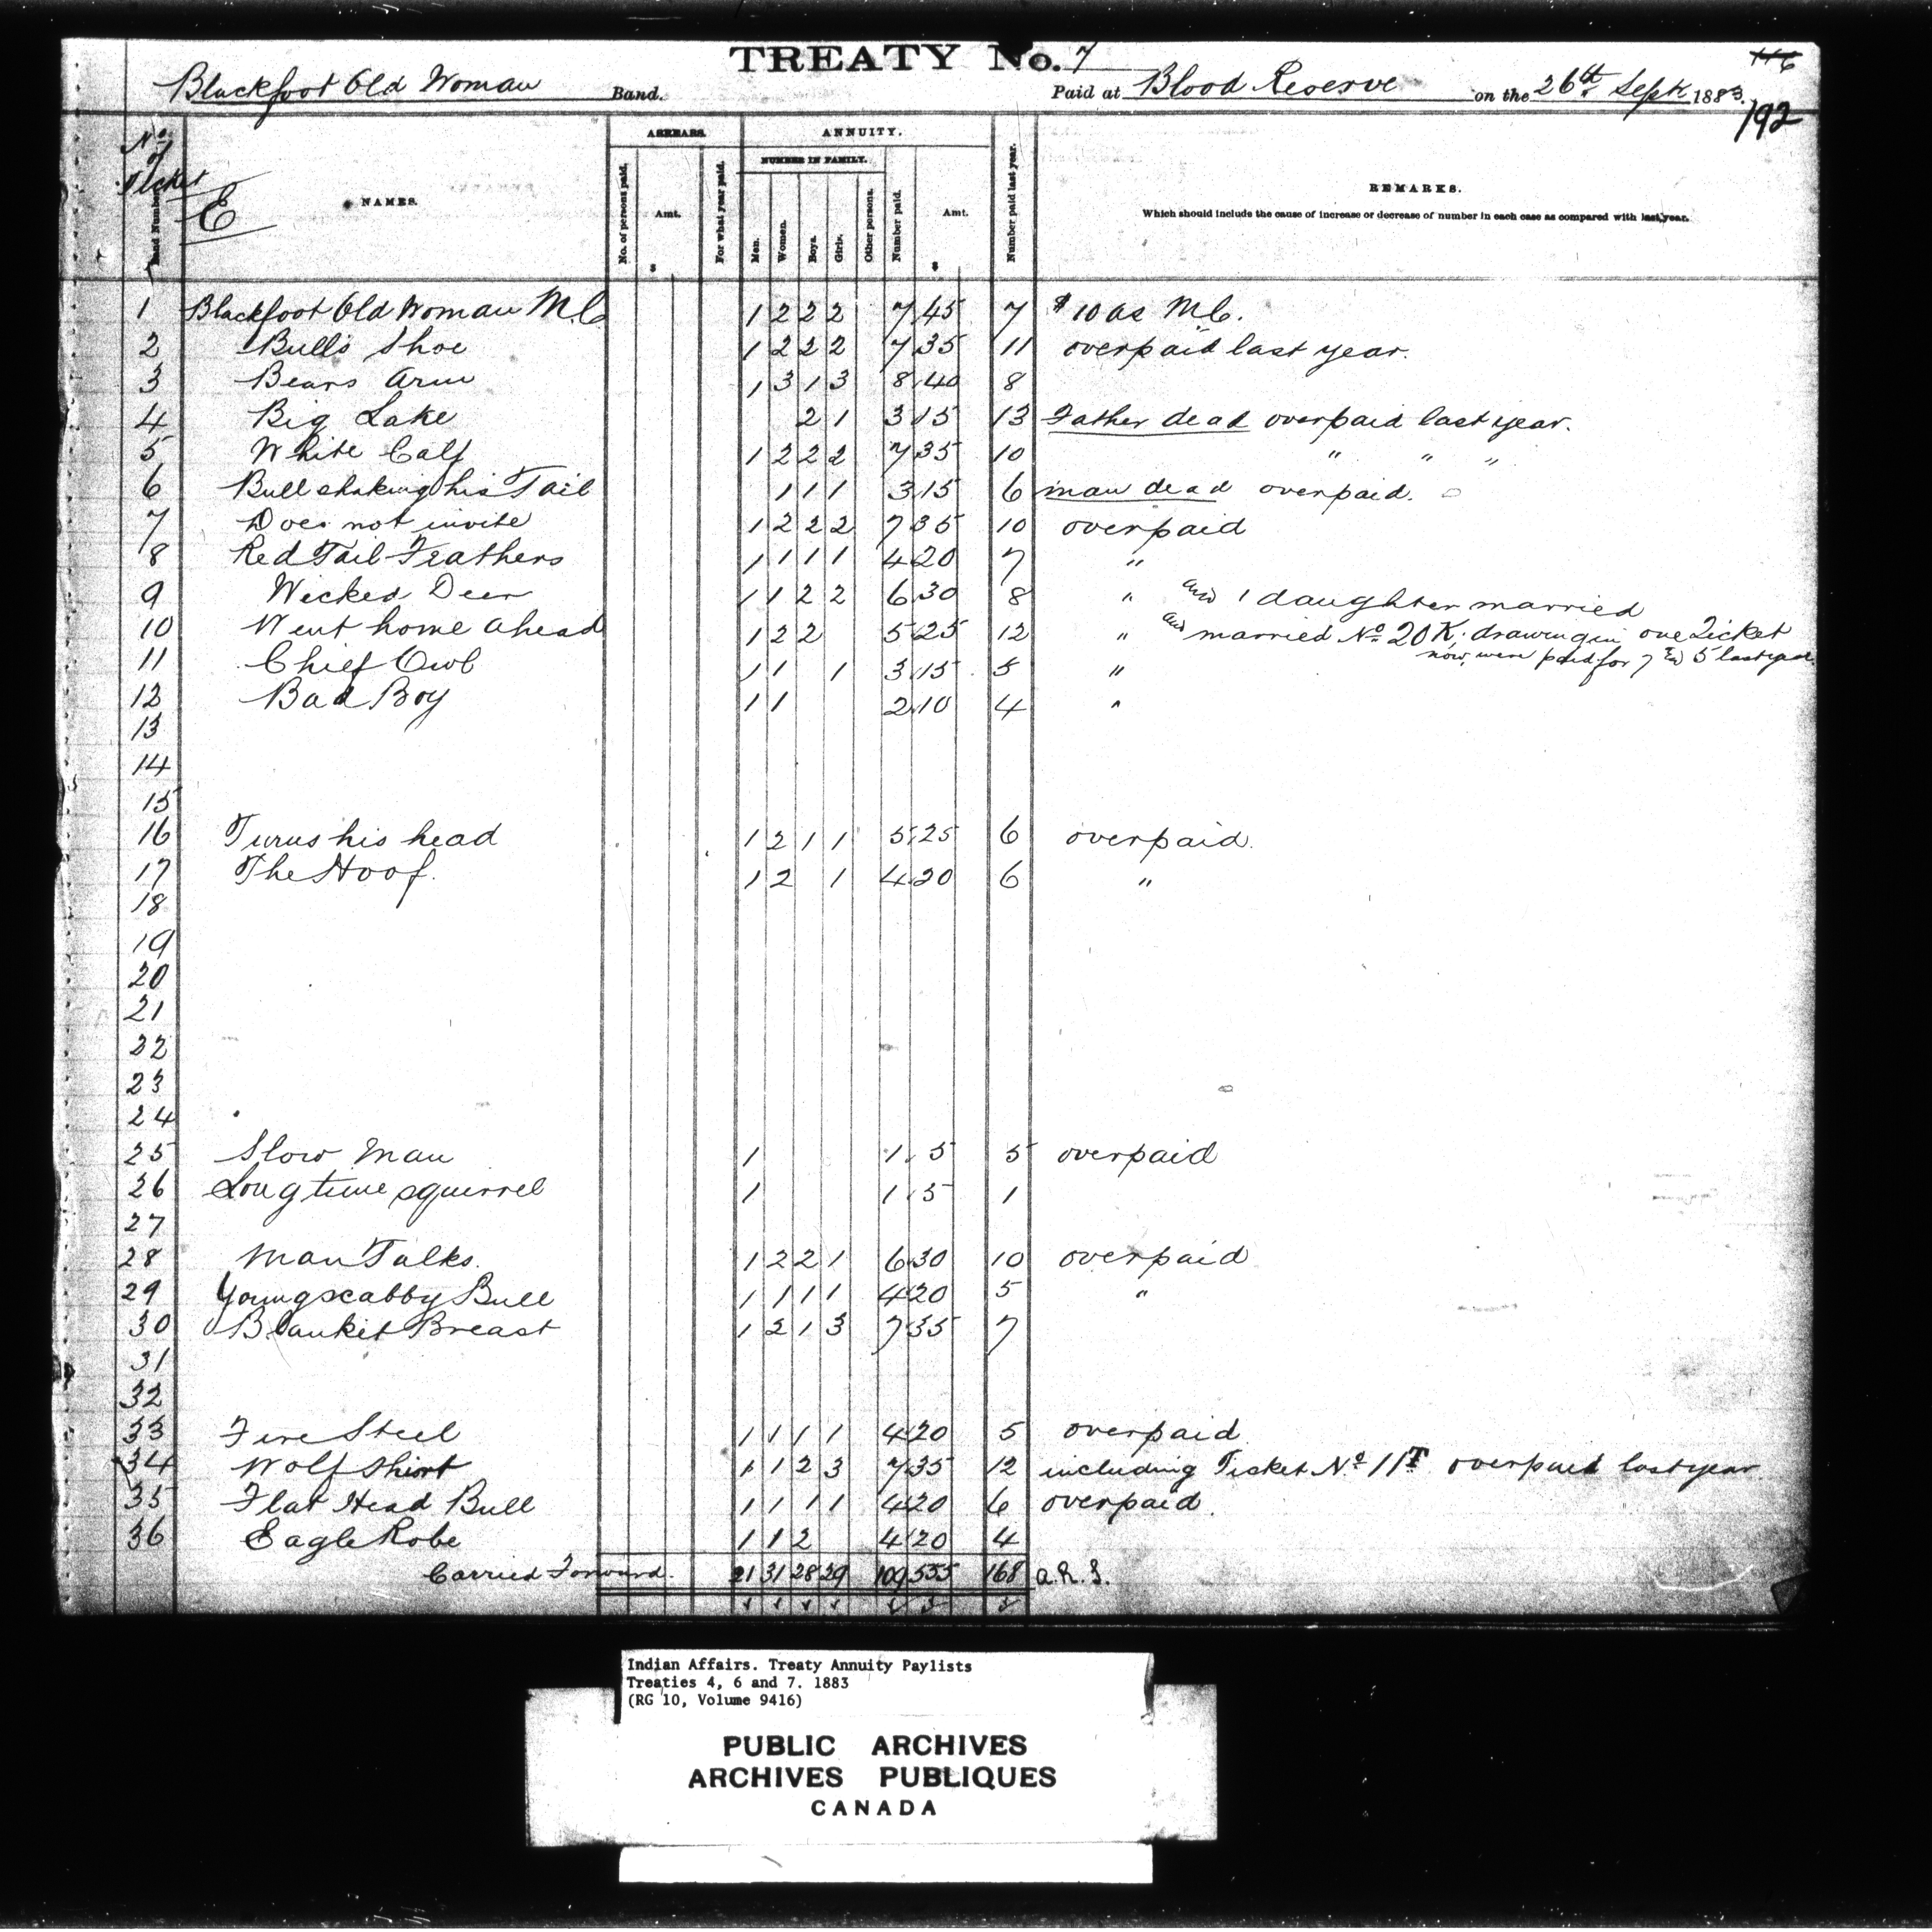 TREATY No. 7
116
Blackfoot Old Woman Band. Paid at Blood Reserve on the 26th Sept 1883.
192
No of Ticket
Band Number
E
NAMES.
ARREARS.
No. of persons paid.
Amt.
$
For what year paid.
ANNUITY.
NUMBER IN FAMILY.
Men.
Women.
Boys.
Girls.
Other persons.
Number paid.
Amt.
$
Number paid last year.
REMARKS.
Which should include the cause of increase or decrease of number in each case as compared with last year.
1 Blackfoot Old Woman M.C 1 2 2 2 7 45 7 $10 as M.C.
2 Bull's Shoe 1 2 2 2 7 35 11 overpaid last year.
3 Bears Arm 1 3 1 3 8 40 8
4 Big Lake 2 1 3 15 13 Father dead overpaid last year.
5 White Calf 1 2 2 2 7 35 10 " " "
6 Bull shaking his Tail 1 1 1 3 15 6 man dead overpaid.
7 Does not invite 1 2 2 2 7 35 10 overpaid
8 Red Tail Feathers 1 1 1 1 4 20 7 "
9 Wicked Deer 1 1 2 2 6 30 8 " and 1 daughter married
10 Went home ahead 1 2 2 5 25 12 " and married No 20 K. drawing in one Ticket
now, were paid for 7 & 5 last year
11 Chief Owl 1 1 1 3 15 5 "
12 Bad Boy 1 1 2 10 4 "
13
14
15
16 Turns his head 1 2 1 1 5 25 6 overpaid.
17 The Hoof. 1 2 1 4 20 6 "
18
19
20
21
22
23
24
25 Slow Man 1 1 5 5 overpaid
26 Long time squirrel 1 1 5 1
27
28 Man Talks. 1 2 2 1 6 30 10 overpaid
29 Young scabby Bull 1 1 1 1 4 20 5 "
30 Blanket Breast 1 2 1 3 7 35 7
31
32
33 Fire Steel 1 1 1 1 4 20 5 overpaid
34 Wolf Shirt 1 1 2 3 7 35 12 including Ticket No 11T overpaid last year.
35 Flat Head Bull 1 1 1 1 4 20 6 overpaid.
36 Eagle Robe 1 1 2 4 20 4
Carried Forward. 21 31 28 29 109 555 168
Indian Affairs. Treaty Annuity Paylists
Treaties 4, 6 and 7. 1883
(RG 10, Volume 9416)
PUBLIC ARCHIVES
ARCHIVES PUBLIQUES
CANADA